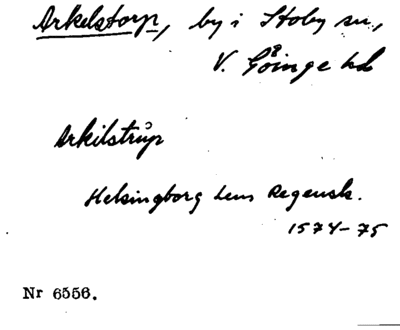 Arkelstorp, by i Stoby sn.,
V. Göinge hd
Arkilstrŭp
Helsingborg Lens Regensk.
1574-75
Nr 6556.